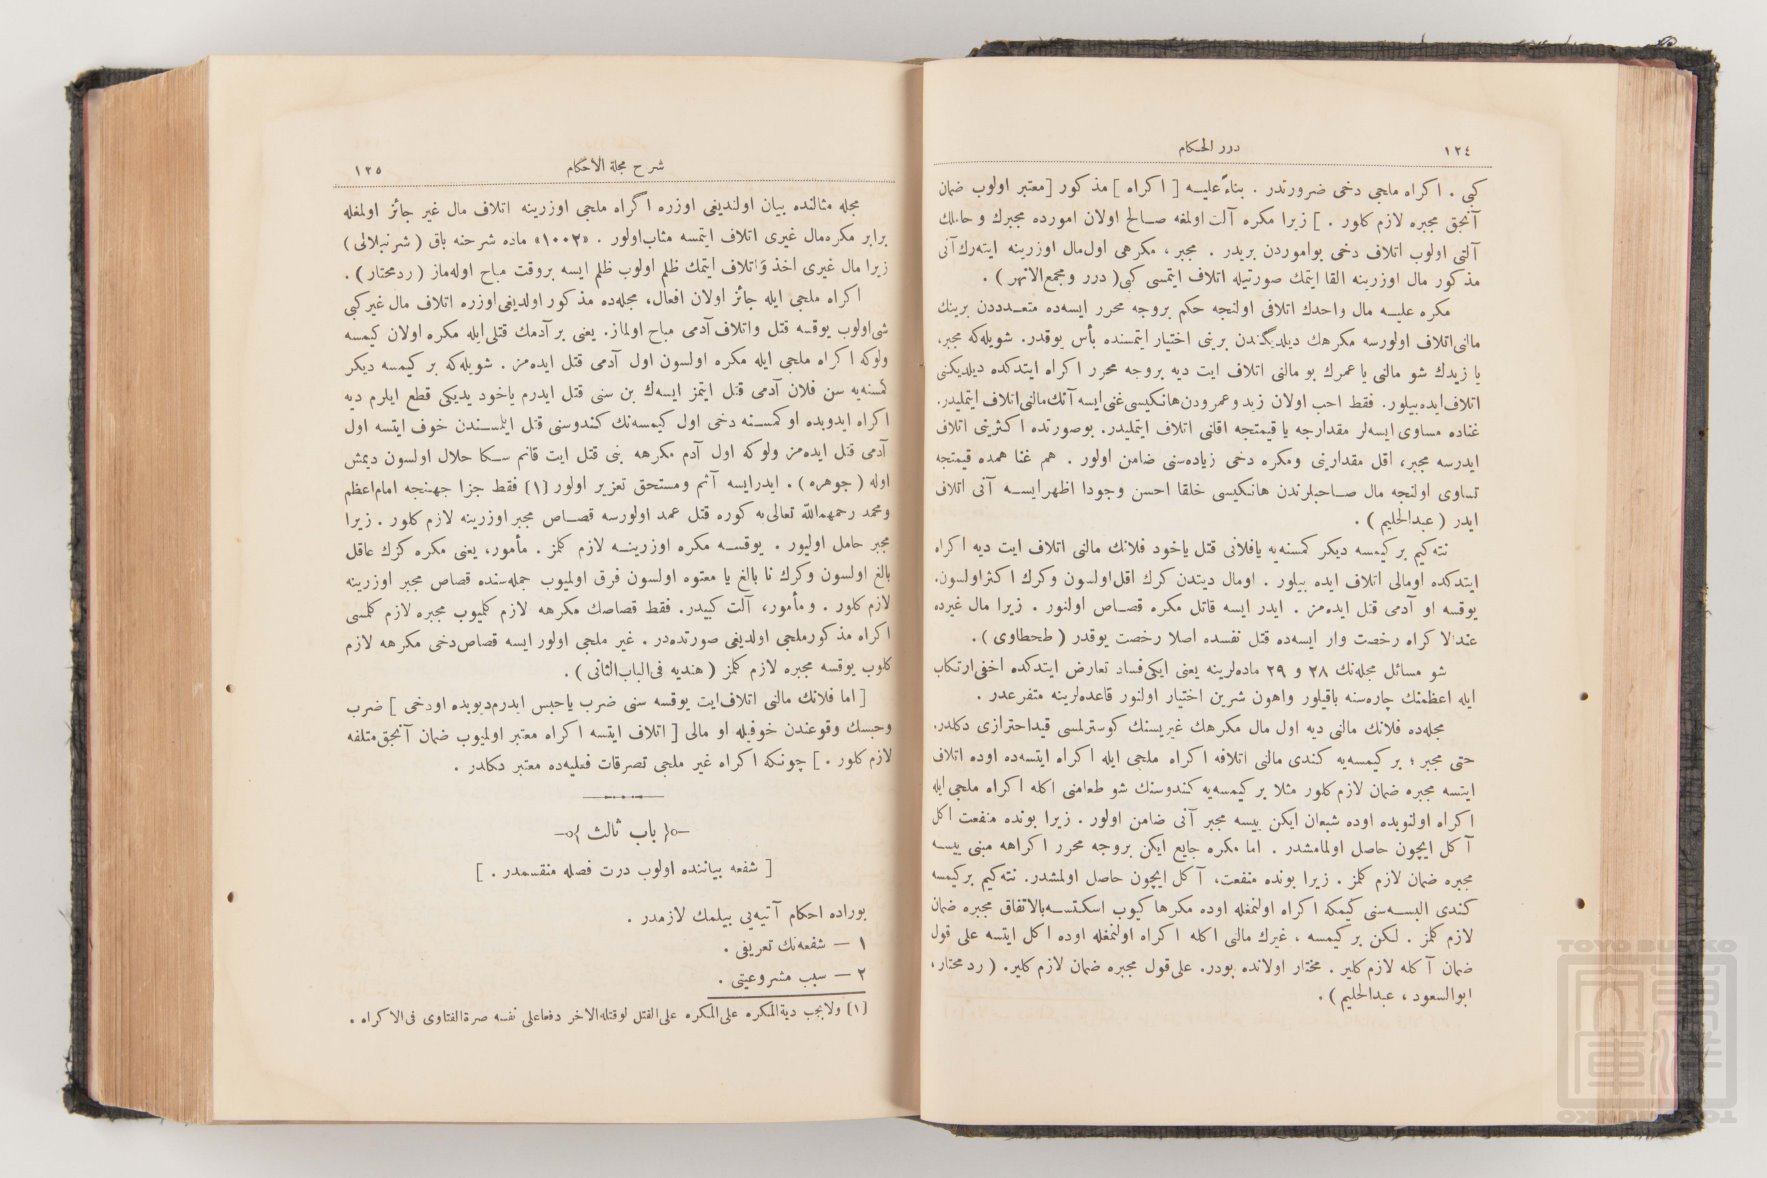 ١٢٤
درر الحكام
كبى . اكراه ملجى دخى ضرورتدر . بناءً عليه [ اكراه ] مذكور [ معتبر اولوب ضمان
آنجق مجبره لازم كلور . ] زيرا مكره آلت اولمغه صالح اولان امورده مجبرك و حاملك
آلتى اولوب اتلاف دخى بواموردن بريدر . مجبر ، مكرهى اول‌مال اوزرينه ايته‌رك آنى
مذكور مال اوزرينه القا ايتمك صورتيله اتلاف ايتمسى كبى ( درر ومجمع‌الانهر ) .
مكره عليه مال واحدك اتلافى اولنجه حكم بروجه محرر ايسه‌ده متعدددن برينك
مالنى اتلاف اولورسه مكرهك ديلديگندن برينى اختيار ايتمسنده بأس يوقدر. شويله‌كه مجبر،
يا زيدك شو مالنى يا عمرك بو مالنى اتلاف ايت ديه بروجه محرر اكراه ايتدكده ديلديكنى
اتلاف ايده‌بيلور. فقط احب اولان زيد وعمرودن هانكيسى غنى ايسه آنك مالنى اتلاف ايتمليدر.
غناده مساوى ايسه‌لر مقدارجه يا قيمتجه اقلنى اتلاف ايتمليدر. بوصورتده اكثرينى اتلاف
ايدرسه مجبر، اقل مقدارينى ومكره دخى زياده‌سنى ضامن اولور . هم غنا همده قيمتجه
تساوى اولنجه مال صاحبلرندن هانكيسى خلقا احسن وجودا اظهر ايسه آنى اتلاف
ايدر ( عبدالحليم ) .
نته‌كيم بر كيمسه ديكر كمسنه‌يه يافلانى قتل ياخود فلانك مالنى اتلاف ايت ديه اكراه
ايتدكده اومالى اتلاف ايده بيلور . اومال ديتدن كرك اقل‌اولسون وكرك اكثراولسون.
يوقسه او آدمى قتل ايده‌مز . ايدر ايسه قاتل مكره قصاص اولنور . زيرا مال غيرده
عندالاكراه رخصت وار ايسه‌ده قتل نفسده اصلا رخصت يوقدر ( طحطاوى ) .
شو مسائل مجله‌نك ٢٨ و ٢٩ ماده‌لرينه يعنى ايكى فساد تعارض ايتدكده اخفى ارتكاب
ايله اعظمنك چاره‌سنه باقيلور واهون شرين اختيار اولنور قاعده‌لرينه متفرعدر .
مجله‌ده فلانك مالنى ديه اول مال مكرهك غيريسنك كوسترلمسى قيداحترازى دكلدر.
حتى مجبر ؛ بر كيمسه‌يه كندى مالنى اتلافه اكراه ملجى ايله اكراه ايتسه‌ده اوده اتلاف
ايتسه مجبره ضمان لازم كلور مثلا بر كيمسه‌يه كندوسنك شو طعامنى اكله اكراه ملجى ايله
اكراه اولنوبده اوده شبعان ايكن ييسه مجبر آنى ضامن اولور . زيرا بونده منفعت اكل
آكل ايچون حاصل اولمامشدر . اما مكره جايع ايكن بروجه محرر اكراهه مبنى ييسه
مجبره ضمان لازم كلمز . زيرا بونده منفعت، آكل ايچون حاصل اولمشدر. نته‌كيم بركيمسه
كندى البسه‌سنى كيمكه اكراه اولنمغله اوده مكرها كيوب اسكتسه بالاتفاق مجبره ضمان
لازم كلمز . لكن بر كيمسه ، غيرك مالنى اكله اكراه اولنمغله اوده اكل ايتسه على قول
ضمان آكله لازم كلير . مختار اولانده بودر. على‌قول مجبره ضمان لازم كلير. ( ردمختار،
ابوالسعود ، عبدالحليم ) .
شرح مجلة الاحكام
١٢٥
مجله مثالنده بيان اولنديغى اوزره اكراه ملجى اوزرينه اتلاف مال غير جائز اولمغله
برابر مكره‌مال غيرى اتلاف ايتمسه مثاب‌اولور . «١٠٠٢» ماده شرحنه باق ( شرنبلالى )
زيرا مال غيرى اخذ واتلاف ايتمك ظلم اولوب ظلم ايسه بروقت مباح اوله‌ماز ( ردمحتار ) .
اكراه ملجى ايله جائز اولان افعال، مجله‌ده مذكور اولديغى‌اوزره اتلاف مال غيركبى
شى‌اولوب يوقسه قتل واتلاف آدمى مباح اولماز. يعنى بر آدمك قتلى‌ايله مكره اولان كيمسه
ولوكه اكراه ملجى ايله مكره اولسون اول آدمى قتل ايده‌مز . شويله‌كه بر كيمسه ديكر
كمسنه‌يه سن فلان آدمى قتل ايتمز ايسه‌ك بن سنى قتل ايدرم ياخود يديكى قطع ايلرم ديه
اكراه ايدوبده اوكمسنه دخى اول كيمسه‌نك كندوسنى قتل ايلمسندن خوف ايتسه اول
آدمى قتل ايده‌مز ولوكه اول آدم مكرهه بنى قتل ايت قانم سكا حلال اولسون ديمش
اوله ( جوهره ) . ايدرايسه آثم ومستحق تعزير اولور [١] فقط جزا جهتنجه امام‌اعظم
ومحمد رحمهماالله تعالى‌يه كوره قتل عمد اولورسه قصاص مجبر اوزرينه لازم كلور . زيرا
مجبر حامل اوليور . يوقسه مكره اوزرينه لازم كلمز . مأمور، يعنى مكره كرك عاقل
بالغ اولسون وكرك نا بالغ يا معتوه اولسون فرق اولميوب جمله‌سنده قصاص مجبر اوزرينه
لازم كلور . ومأمور، آلت كبيدر. فقط قصاصك مكرهه لازم كلميوب مجبره لازم كلمسى
اكراه مذكورملجى اولديغى صورتده‌در . غير ملجى اولور ايسه قصاص‌دخى مكرهه لازم
كلوب يوقسه مجبره لازم كلمز ( هنديه فى‌الباب‌الثانى ) .
[ اما فلانك مالنى اتلاف‌ايت يوقسه سنى ضرب ياحبس ايدرم‌ديوبده اودخى ] ضرب
وحبسك وقوعندن خوفيله او مالى [ اتلاف ايتسه اكراه معتبر اولميوب ضمان آنجق‌متلفه
لازم كلور . ] چونكه اكراه غير ملجى تصرفات فعليه‌ده معتبر دكلدر .
﴿ باب ثالث ﴾
[ شفعه بياننده اولوب درت فصله منقسمدر . ]
بوراده احكام آتيه‌يى بيلمك لازمدر .
١ — شفعه‌نك تعريفى .
٢ — سبب مشروعيتى .
[١] ولايجب دية‌المكره على‌المكره على‌القتل لوقتله‌الاخر دفعاعلى نفسه صرة‌الفتاوى فى‌الاكراه .
TOYO BUNKO
東洋文庫
TOYO BUNKO